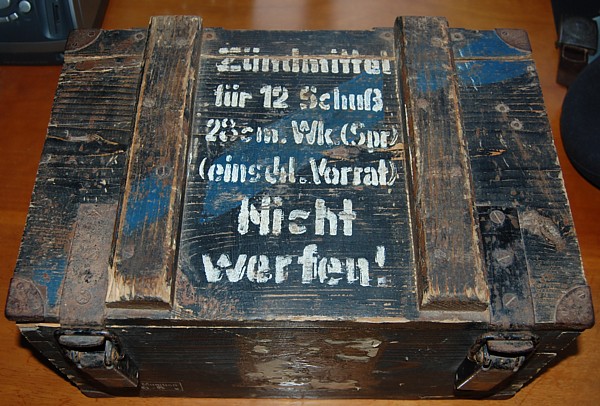 Zündmittel
für 12 Schuß
28cm. Wk.(Spr)
(einschl. Vorrat)
Nicht
werfen!